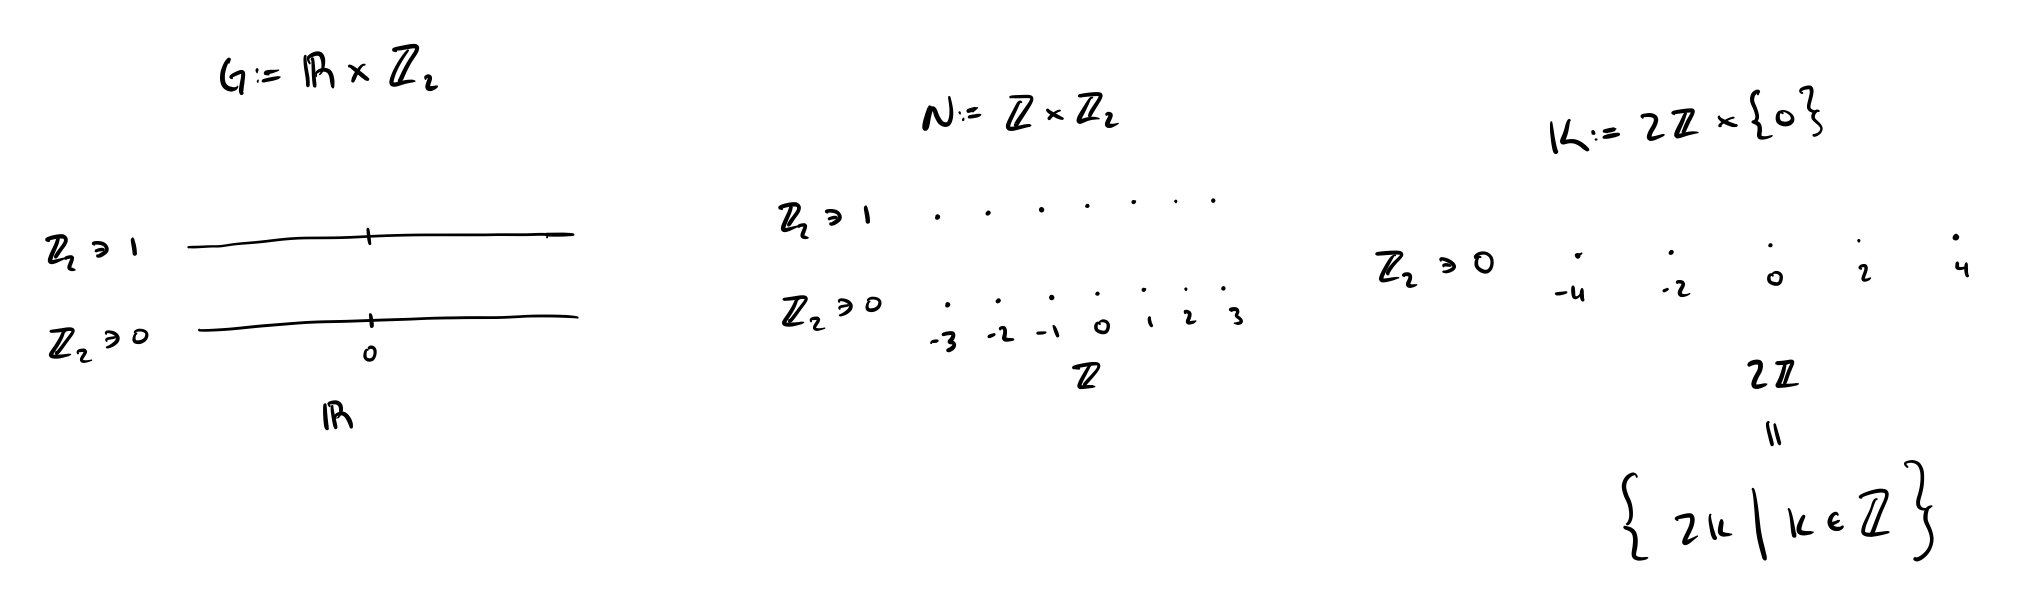 G := ℝ × ℤ₂
ℤ₂ ∋ 1
ℤ₂ ∋ 0
0
ℝ
N := ℤ × ℤ₂
ℤ₂ ∋ 1
ℤ₂ ∋ 0
-3 -2 -1 0 1 2 3
ℤ
K := 2ℤ × {0}
ℤ₂ ∋ 0
-4 -2 0 2 4
2ℤ
=
{ 2k | k ∈ ℤ }